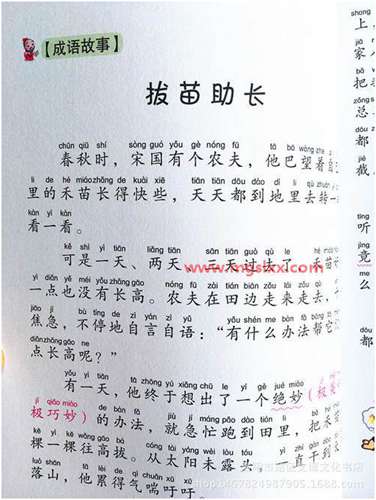 【成语故事】
拔苗助长
chūn qiū shí sòng guó yǒu gè nóng fū tā bā wàng zhe
春秋时，宋国有个农夫，他巴望着自
lǐ de hé miáo zhǎng de kuài xiē tiān tiān dōu dào dì lǐ qù zhuàn
里的禾苗长得快些，天天都到地里去转一
kàn yí kàn
看一看。
kě shì yì tiān liǎng tiān sān tiān guò qù le hé miáo
可是一天、两天、三天过去了，禾苗
yì diǎn yě méi yǒu zhǎng gāo nóng fū zài tián biān zǒu lái zǒu qù
一点也没有长高。农夫在田边走来走去，
jiāo jí bù tíng de zì yán zì yǔ yǒu shén me bàn fǎ bāng
焦急，不停地自言自语：“有什么办法帮它
diǎn zhǎng gāo ne
点长高呢？”
yǒu yì tiān tā zhōng yú xiǎng chū le yí gè jué miào
有一天，他终于想出了一个绝妙（极其
jí qiǎo miào de bàn fǎ jiù jí máng pǎo dào tián lǐ bǎ hé
极巧妙）的办法，就急忙跑到田里，把禾
kē yì kē wǎng gāo bá cóng tài yáng wèi lòu tóu yì zhí gàn dào
棵一棵往高拔。从太阳未露头，一直干到
luò shān tā lèi de chuǎn qì xū xū
落山，他累得气喘吁吁
shàng
上，
jiā
家
bǎ
把
zǒng
总
dōu
都
jié
截
tīng
听
jìng
竟
me
么
www.ngsxx.com